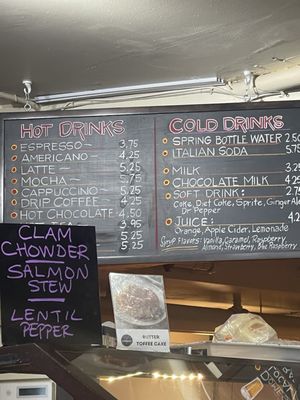 HOT DRINKS
ESPRESSO 3.75
AMERICANO 4.25
LATTE 5.25
MOCHA 5.75
CAPPUCCINO 5.25
DRIP COFFEE 4.25
HOT CHOCOLATE 4.50
3.95
5.25
5.25
COLD DRINKS
SPRING BOTTLE WATER 2.50
ITALIAN SODA 5.75
MILK 3.25
CHOCOLATE MILK 4.25
SOFT DRINK: 2.75
Coke, Diet Coke, Sprite, Ginger Ale
Dr Pepper
JUICE: 4.2
Orange, Apple Cider, Lemonade
Syrup Flavors: Vanilla, Caramel, Raspberry
Almond, Strawberry, Blue Raspberry
CLAM
CHOWDER
SALMON
STEW
LENTIL
PEPPER
BUTTER
TOFFEE CAKE